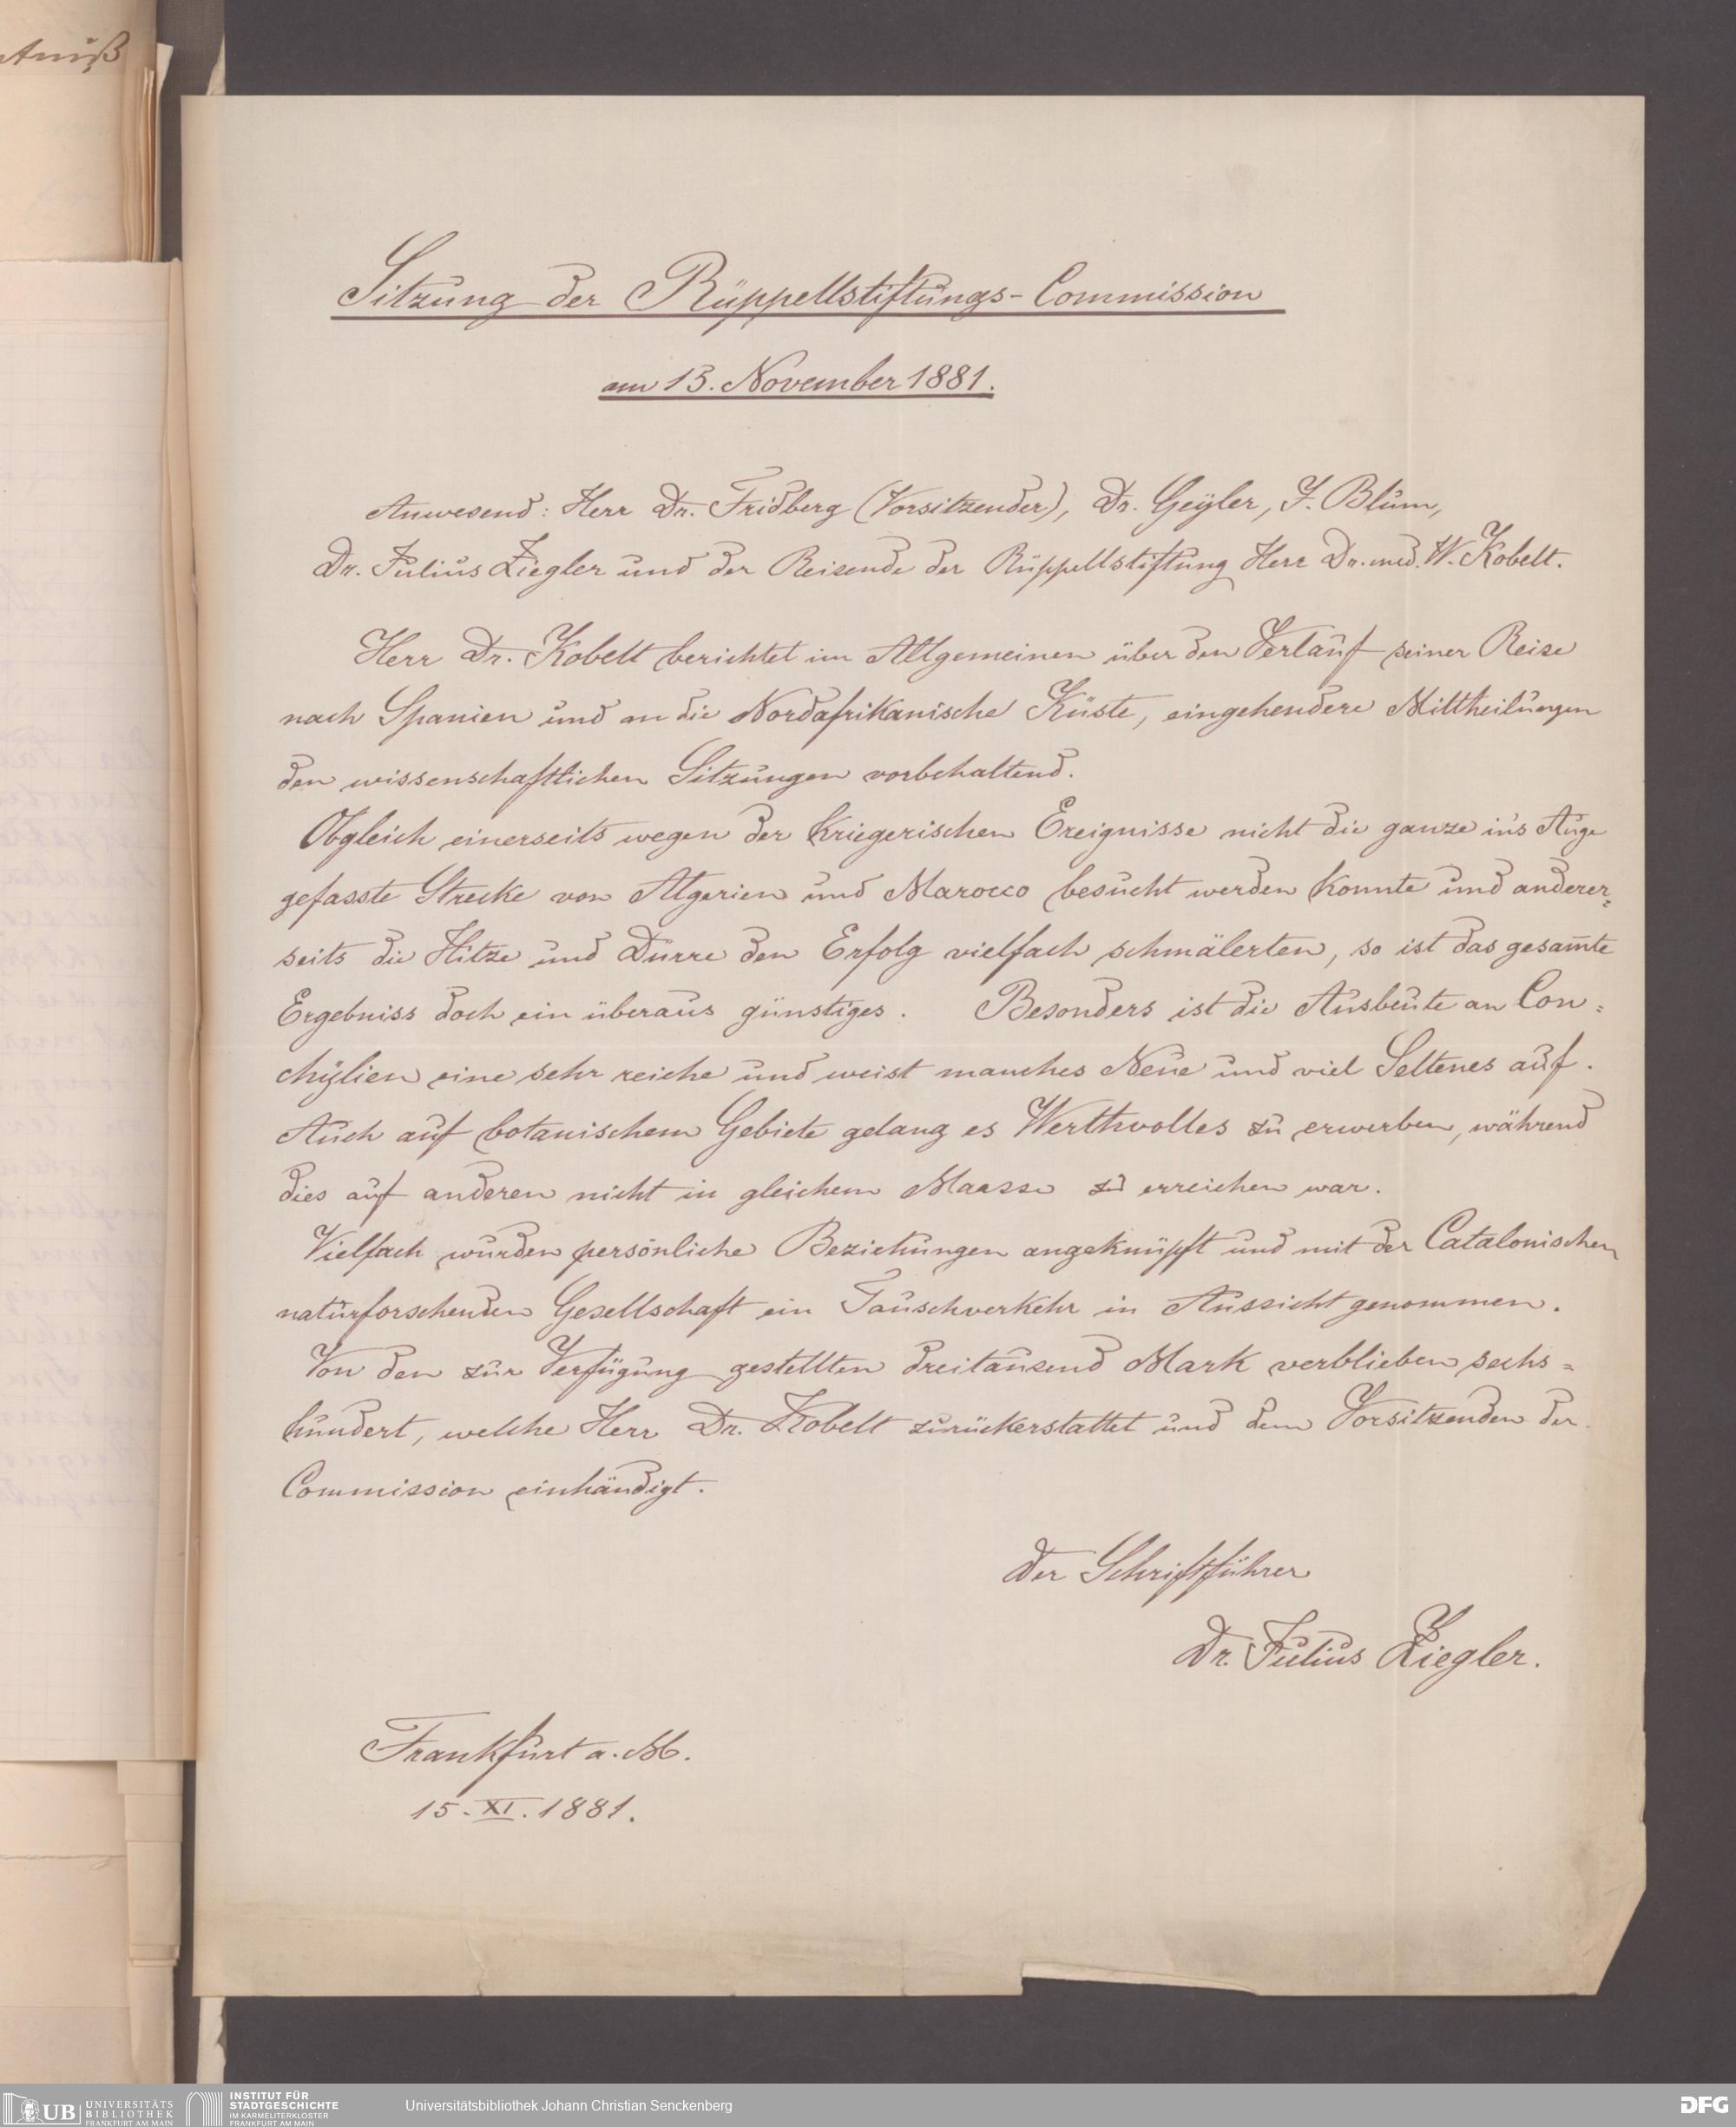 tniß
Sitzung der Rüppellstiftungs-Commission
am 13. November 1881.
Anwesend: Herr Dr. Fridberg (Vorsitzender), Dr. Geyler, J. Blum,
Dr. Julius Ziegler und der Reisende der Rüppellstiftung Herr Dr. med. W. Kobelt.
Herr Dr. Kobelt berichtet im Allgemeinen über den Verlauf seiner Reise
nach Spanien und an die Nordafrikanische Küste, eingehendere Mittheilungen
den wissenschaftlichen Sitzungen vorbehaltend.
Obgleich einerseits wegen der kriegerischen Ereignisse nicht die ganze in's Auge
gefasste Strecke von Algerien und Marocco besucht werden konnte und anderer=
seits die Hitze und Dürre den Erfolg vielfach schmälerten, so ist das gesam̄te
Ergebniss doch ein überaus günstiges. Besonders ist die Ausbeute an Con=
chylien eine sehr reiche und weist manches Neue und viel Seltenes auf.
Auch auf botanischem Gebiete gelang es Werthvolles zu erwerben, während
dies auf anderen nicht in gleichem Maasse zu erreichen war.
Vielfach wurden persönliche Beziehungen angeknüpft und mit der Catalonischen
naturforschenden Gesellschaft ein Tauschverkehr in Aussicht genommen.
Von den zur Verfügung gestellten dreitausend Mark verblieben sechs=
hundert, welche Herr Dr. Kobelt zurückerstattet und dem Vorsitzenden der
Commission einhändigt.
Der Schriftführer
Dr. Julius Ziegler.
Frankfurt a. M.
15. XI. 1881.
UB UNIVERSITÄTS
BIBLIOTHEK
FRANKFURT AM MAIN
INSTITUT FÜR
STADTGESCHICHTE
IM KARMELITERKLOSTER
FRANKFURT AM MAIN
Universitätsbibliothek Johann Christian Senckenberg
DFG